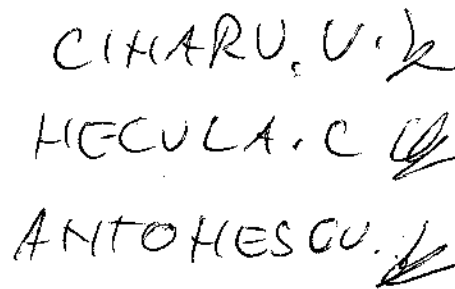 CIHARU. V.
HECULA. C
ANTOHESCU.